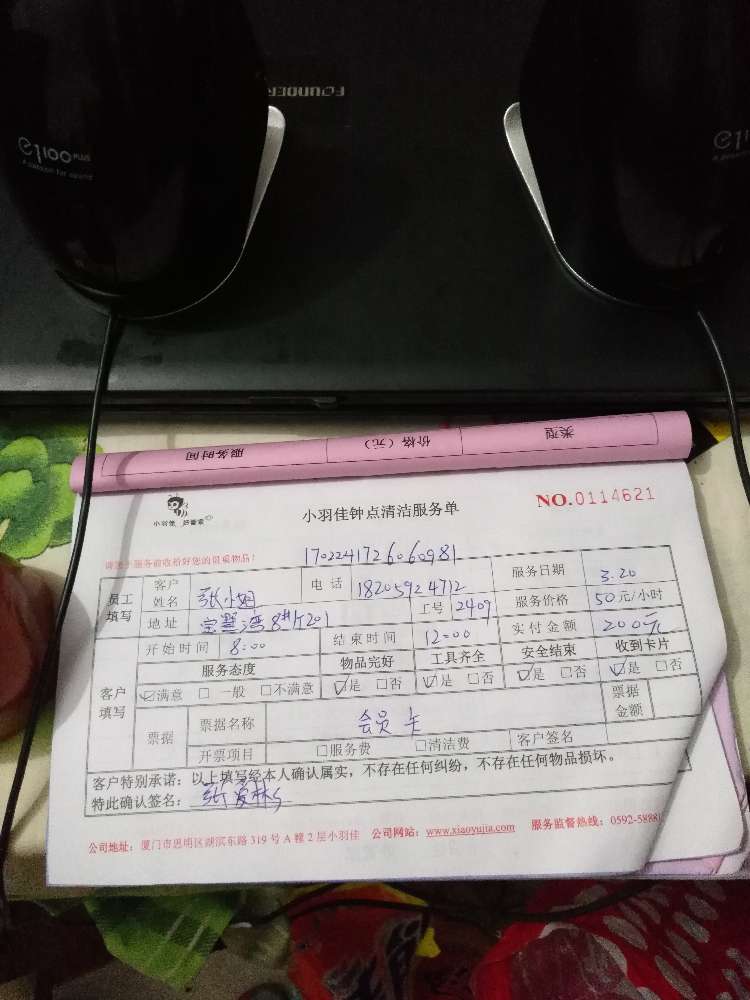 FOUNDER
e1100 PLUS
A passion for sound
e1
服务时间 价格（元） 类型
小羽佳 好管家
小羽佳钟点清洁服务单 NO.0114621
请您于服务前收拾好您的贵重物品！ 1702241726060981
员工填写 客户姓名 张小姐 电话 18205924712 服务日期 3.20
地址 宝慧湾8#1201 工号 2407 服务价格 50元/小时
开始时间 8:00 结束时间 12:00 实付金额 200元
客户填写 服务态度 物品完好 工具齐全 安全结束 收到卡片
☑满意 □一般 □不满意 ☑是 □否 ☑是 □否 ☑是 □否 ☑是 □否
票据 票据名称 会员卡 票据金额
开票项目 □服务费 □清洁费 客户签名
客户特别承诺：以上填写经本人确认属实，不存在任何纠纷，不存在任何物品损坏。
特此确认签名：张爱林
公司地址：厦门市思明区湖滨东路319号A幢2层小羽佳 公司网站：www.xiaoyujia.com 服务监督热线：0592-58881